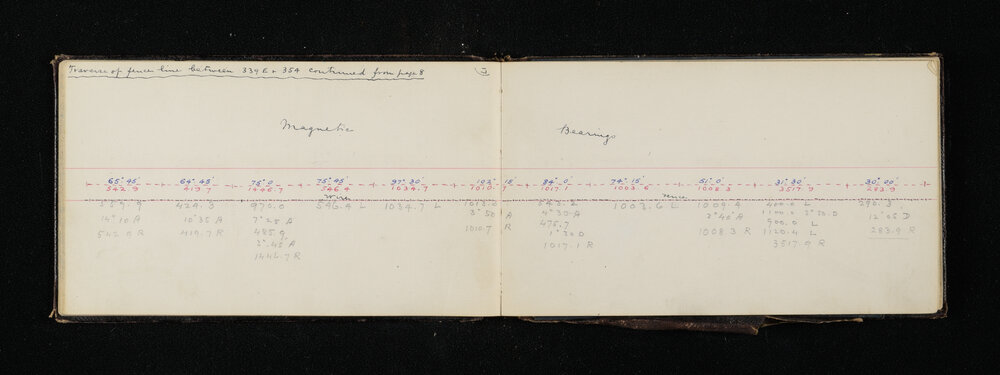 Traverse of fence line between 339E + 354 continued from page 8
Magnetic Bearings
65° 45' 64° 45' 75° 0' 75° 45' 97° 30' 102° 15' 84° 0' 74° 15' 51° 0' 31° 30' 30° 00'
542.9 419.7 1446.7 546.4 1034.7 1010.7 1017.1 1003.6 1008.3 3517.9 283.9
Wire fence
559.9 424.3 970.0 546.4 L 1034.7 L 1013.0 540.2 1003.6 L 1009.4 400.0 L 290.3
14° 10 A 10° 35 A 7° 28 A 3° 50 A 4° 30 A 2° 40 A 1100.0 3° 30 D 12° 05 D
542.8 R 419.7 R 485.9 1010.7 R 475.7 1008.3 R 900.0 L 283.9 R
2° 45 A 1° 30 D 1120.4 L
1446.7 R 1017.1 R 3517.9 R